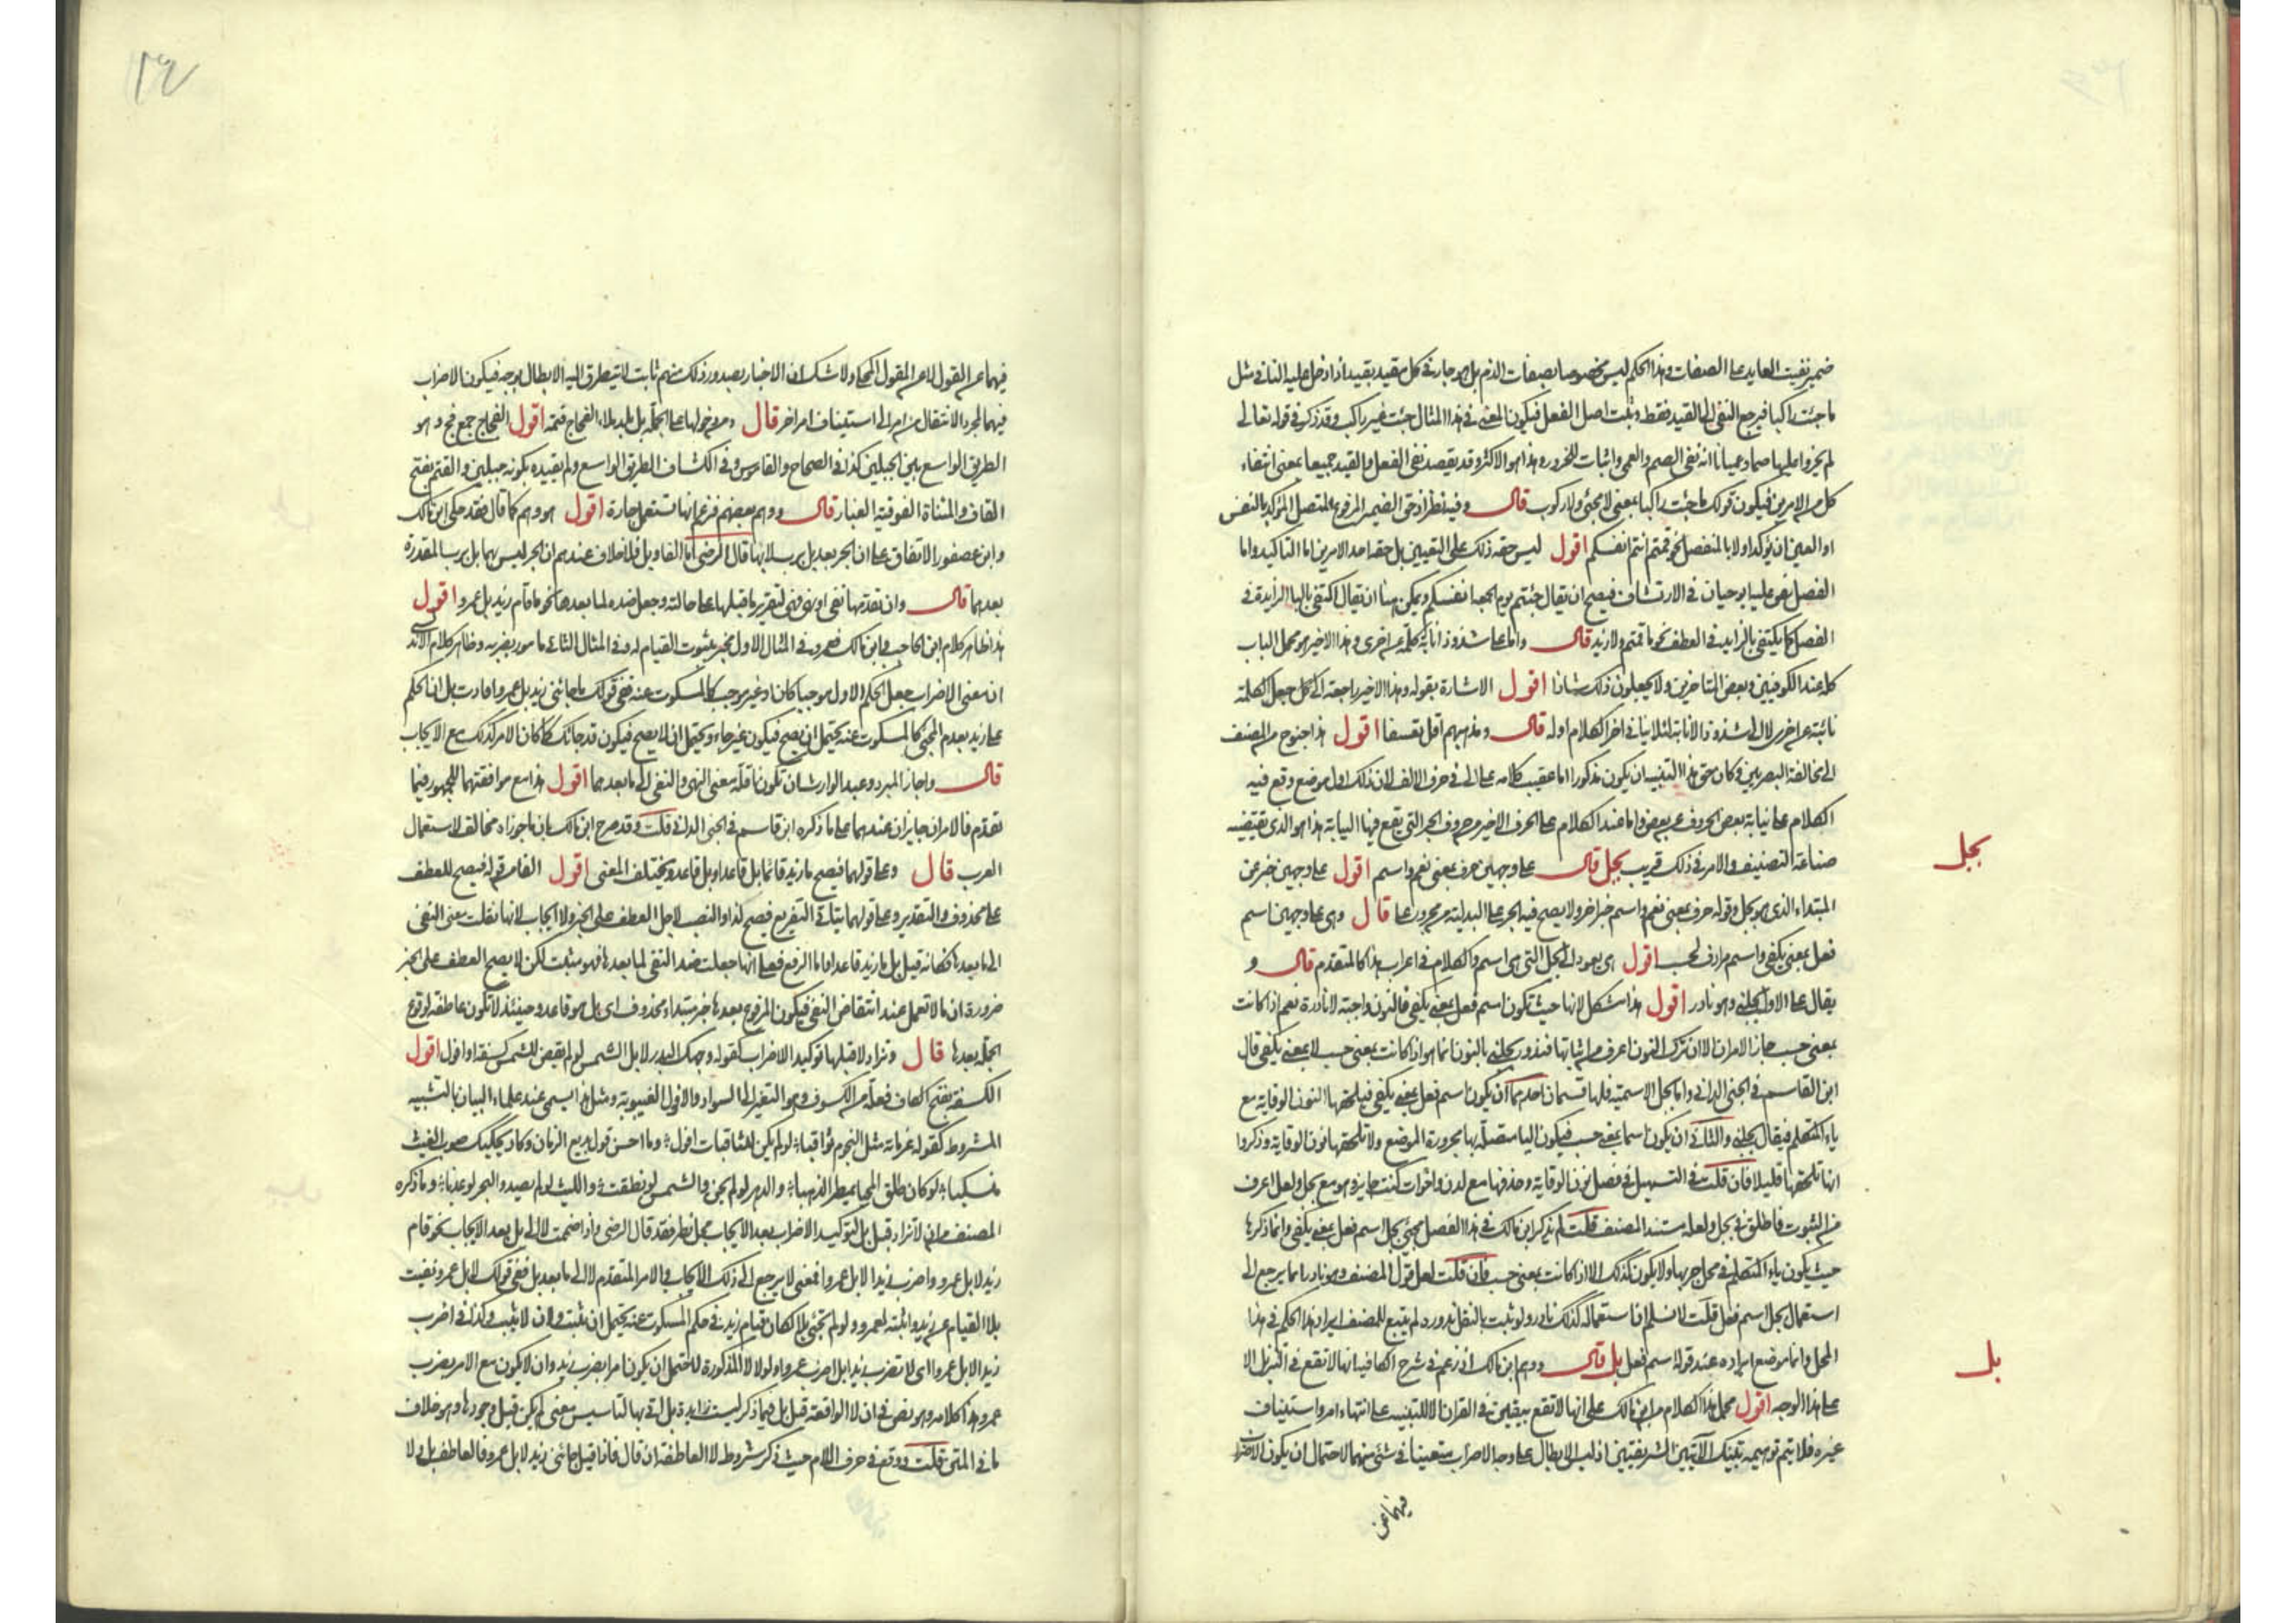 ضمير نفيت العايد على الصفات وهذا الحكم ليس مخصوصا بصفات الذم بل هو جار في كل مقيد بقيد اذا دخل عليه النافي مثل
ما جئت راكبا فيرجع النفي الى القيد فقط وثبت اصل الفعل فيكون المعنى في هذا المثال جئت غير راكب وقد ذكر في قوله تعالى
لم يخروا عليها صما وعميانا انه نفي الصمم والعمى واثبات للخرور وهذا هو الاكثر وقد يقصد نفي الفعل والقيد جميعا بمعنى انتفاء
كل من الامرين فيكون قولك ما جئت راكبا بمعنى لا مجئ ولا ركوب قال وفيه نظر اذ حق الضمير المرفوع المتصل المؤكد بالنفس
او العين ان يؤكد اولا بالمنفصل نحو قمتم انتم انفسكم اقول ليس حقه ذلك على التعيين بل حقه احد الامرين اما التاكيد واما
الفصل نص عليه ابو حيان في الارتشاف فيصح ان يقال جئتم يوم الجمعة انفسكم ويمكن هنا ان يقال اكتفى بالبا الزايدة في
الفصل كما يكتفى بالزايد في العطف نحو ما قمتم ولا زيد قال واما على شذوذ انابة كلمة عن اخرى وهذا الاخير هو محمل الباب
كله عند الكوفيين وبعض المتاخرين ولا يجعلون ذلك شاذا اقول الاشارة بقوله وهذا الاخير راجعة الى كل جعل الكلمة
نائبة عن اخرى لا الى شذوذ الانابة لئلا ينافي اخر الكلام اوله قال ومذهبهم اقل تعسفا اقول هذا جنوح من المصنف
الى مخالفة البصريين وكان حق هذا التنبيه ان يكون مذكورا اما عقيب كلامه على الى في حرف الالف لان ذلك اول موضع وقع فيه
الكلام على نيابة بعض الحروف عن بعض واما عند الكلام على الحرف الاخير من حروف الجر التي يقع فيها النيابة هذا هو الذي يقتضيه
صناعة التصنيف والامر في ذلك قريب بجل قال على وجهين حرف بمعنى نعم واسم اقول على وجهين خبر عن
بجل
المبتداء الذي هو بجل وقوله حرف بمعنى نعم واسم خبر اخر ولا يصح فيه الجر على البدلية من مجرور على قال وهي على وجهين اسم
فعل بمعنى يكفي واسم مرادف لحسب اقول هي يعود الى بجل التي هي اسم والكلام في اعراب هذا كالمتقدم قال و
يقال على الاول بجلني وهو نادر اقول هذا مشكل لانها حيث تكون اسم فعل بمعنى يكفي فالنون واجبة لا نادرة نعم اذا كانت
بمعنى حسب جاز الامران الا ان ترك النون اعرف من اثباتها فندور بجلني بالنون انما هو اذا كانت بمعنى حسب لا بمعنى يكفي قال
ابن القاسم في الجنى الداني واما بجل الاسمية فلها قسمان احدهما ان يكون اسم فعل بمعنى يكفي فيلحقها النون الوقاية مع
ياء المتكلم فيقال بجلني والثاني ان يكون اسما بمعنى حسب فيكون اليا متصلة بها مجرورة الموضع ولا تلحقها نون الوقاية وذكروا
انها تلحقها قليلا فان قلت في التسهيل في فصل نون الوقاية وحذفها مع لدن واخوات ليت جايز وهو مع بجل ولعل اعرف
من الثبوت فاطلق في بجل ولعله مستند المصنف قلت لم يذكر ابن مالك في هذا الفصل مجئ بجل اسم فعل بمعنى يكفي وانما ذكرها
حيث يكون ياء المتكلم في محل جر بها ولا يكون كذلك الا اذا كانت بمعنى حسب فان قلت لعل قول المصنف وهو نادر انما يرجع الى
استعمال بجل اسم فعل قلت لا نسلم ان استعماله كذلك نادر ولو ثبت بالنقل ندوره لم يتبع للمصنف ايراد هذا الحكم في هذا
المحل وانما موضع ايراده عند قوله اسم فعل بل قال ووهم ابن مالك اذ زعم في شرح الكافية انها لا تقع في التنزيل الا
بل
على هذا الوجه اقول محمل هذا الكلام من ابن مالك على انها لا تقع بيقين في القران الا للتنبيه على انتهاء امر واستيناف
غيره فلا يتم توهيمه بتينك الآيتين الشريفتين اذ ليس الابطال على وجه الاضراب متعينا في شئ منهما لاحتمال ان يكون الاضراب
فيهما عن
١٦
فيهما عن القول لا عن المقول المحكي ولا شك ان الاخبار بصدور ذلك منهم ثابت لا يتطرق اليه الابطال بوجه فيكون الاضراب
فيهما لمجرد الانتقال من امر الى استيناف امر اخر قال ومن دخولها على الجملة بل بلد ملاء الفجاج قتمه اقول الفجاج جمع فج وهو
الطريق الواسع بين الجبلين كذا في الصحاح والقاموس وفي الكشاف الطريق الواسع ولم يقيده بكونه جبلين والقتم بفتح
القاف والمثناة الفوقية الغبار قال ووهم بعضهم فزعم انها تستعمل جارة اقول هو وهم كما قال فقد حكى ابن مالك
وابن عصفور الاتفاق على ان الجر بعد بل برب لا بها قال الرضي اما الفا وبل فلا خلاف عندهم ان الجر ليس بهما بل برب المقدرة
بعدهما قال وان تقدمها نفي او نهي فهي لتقرير ما قبلها على حالته وجعل ضده لما بعدها نحو ما قام زيد بل عمرو اقول
هذا ظاهر كلام ابن الحاجب وابن مالك فعمرو في المثال الاول مخبر بثبوت القيام له وفي المثال الثاني مامور بضربه وظاهر كلام الاندلسي
ان معنى الاضراب جعل الحكم الاول موجبا كان او غير موجب كالمسكوت عنه ففي قولك ما جائني زيد بل عمرو افادت بل ان الحكم
على زيد بعدم المجئ كالمسكوت عنه يحتمل ان يصح فيكون غير جاء ويحتمل ان لا يصح فيكون قد جائك كما كان الامر كذلك مع الايجاب
قال واجاز المبرد وعبد الوارث ان تكون ناقلة معنى النهي والنفي الى ما بعدها اقول هذا مع موافقتهما للجمهور فيما
تقدم فالامران جايزان عندهما على ما ذكره ابن قاسم في الجنى الداني قلت وقد صرح ابن مالك بان ما جوزاه مخالف لاستعمال
العرب قال وعلى قولهما فيصح ما زيد قائما بل قاعدا وبل قاعد ويختلف المعنى اقول الفا من قوله فيصح للعطف
على محذوف والتقدير وعلى قولهما يتاتى التفريع فيصح لذا والنصب لاجل العطف على الخبر ولا ايجاب لانها نقلت معنى النفي
الى ما بعدها فكانه قيل بل ما زيد قاعدا واما الرفع فعلى انها جعلت ضد النفي لما بعدها فهو مثبت لكن لا يصح العطف على الخبر
ضرورة ان ما لا تعمل عند انتقاض النفي فيكون المرفوع بعدها خبر مبتداء محذوف اي بل هو قاعد وحينئذ لا تكون عاطفة لوقوع
الجملة بعدها قال وتزاد لا قبلها توكيد الاضراب كقوله وجهك البدر لا بل الشمس لو لم يقض للشمس كسفة او افول اقول
الكسفة بفتح الكاف فعلة من الكسوف وهو التغير الى السواد والافول الغيبوبة ومثل هذا يسمى عند علماء البيان بالتشبيه
المشروط كقوله عزماته مثل النجوم ثواقبا لو لم يكن للثاقبات افول وما احسن قول بديع الزمان وكاد يحكيك صوب الغيث
منسكبا لو كان طلق المحيا يمطر الذهبا والدهر لو لم يخن والشمس لو نطقت والليث لو لم يصد والبحر لو عذبا وما ذكره
المصنف من ان لا تزاد قبل بل لتوكيد الاضراب بعد الايجاب محل نظر فقد قال الرضي واذا ضممت لا الى بل بعد الايجاب نحو قام
زيد لا بل عمرو واضرب زيدا لا بل عمرا فمعنى لا يرجع الى ذلك الايجاب والامر المتقدم لا الى ما بعد بل ففي قولك لا بل عمرو نفيت
بلا القيام عن زيد واثبته لعمرو ولو لم تجئ بلا لكان قيام زيد في حكم المسكوت عنه يحتمل ان يثبت وان لا يثبت وكذا في اضرب
زيدا لا بل عمروا اي لا تضرب زيدا بل اضرب عمروا ولولا لا المذكورة لاحتمل ان يكون امرا بضرب زيد وان لا يكون مع الامر بضرب
عمرو هذا كلامه وهو نص في ان لا الواقعة قبل بل فيما ذكر ليست زايدة بل اتي بها لتاسيس معنى لم يكن قبل وجودها وهو خلاف
ما في المتن قلت ووقع في حرف اللام حيث ذكر شروط لا العاطفة ان قال فاذا قيل جائني زيد لا بل عمرو فالعاطف بل ولا